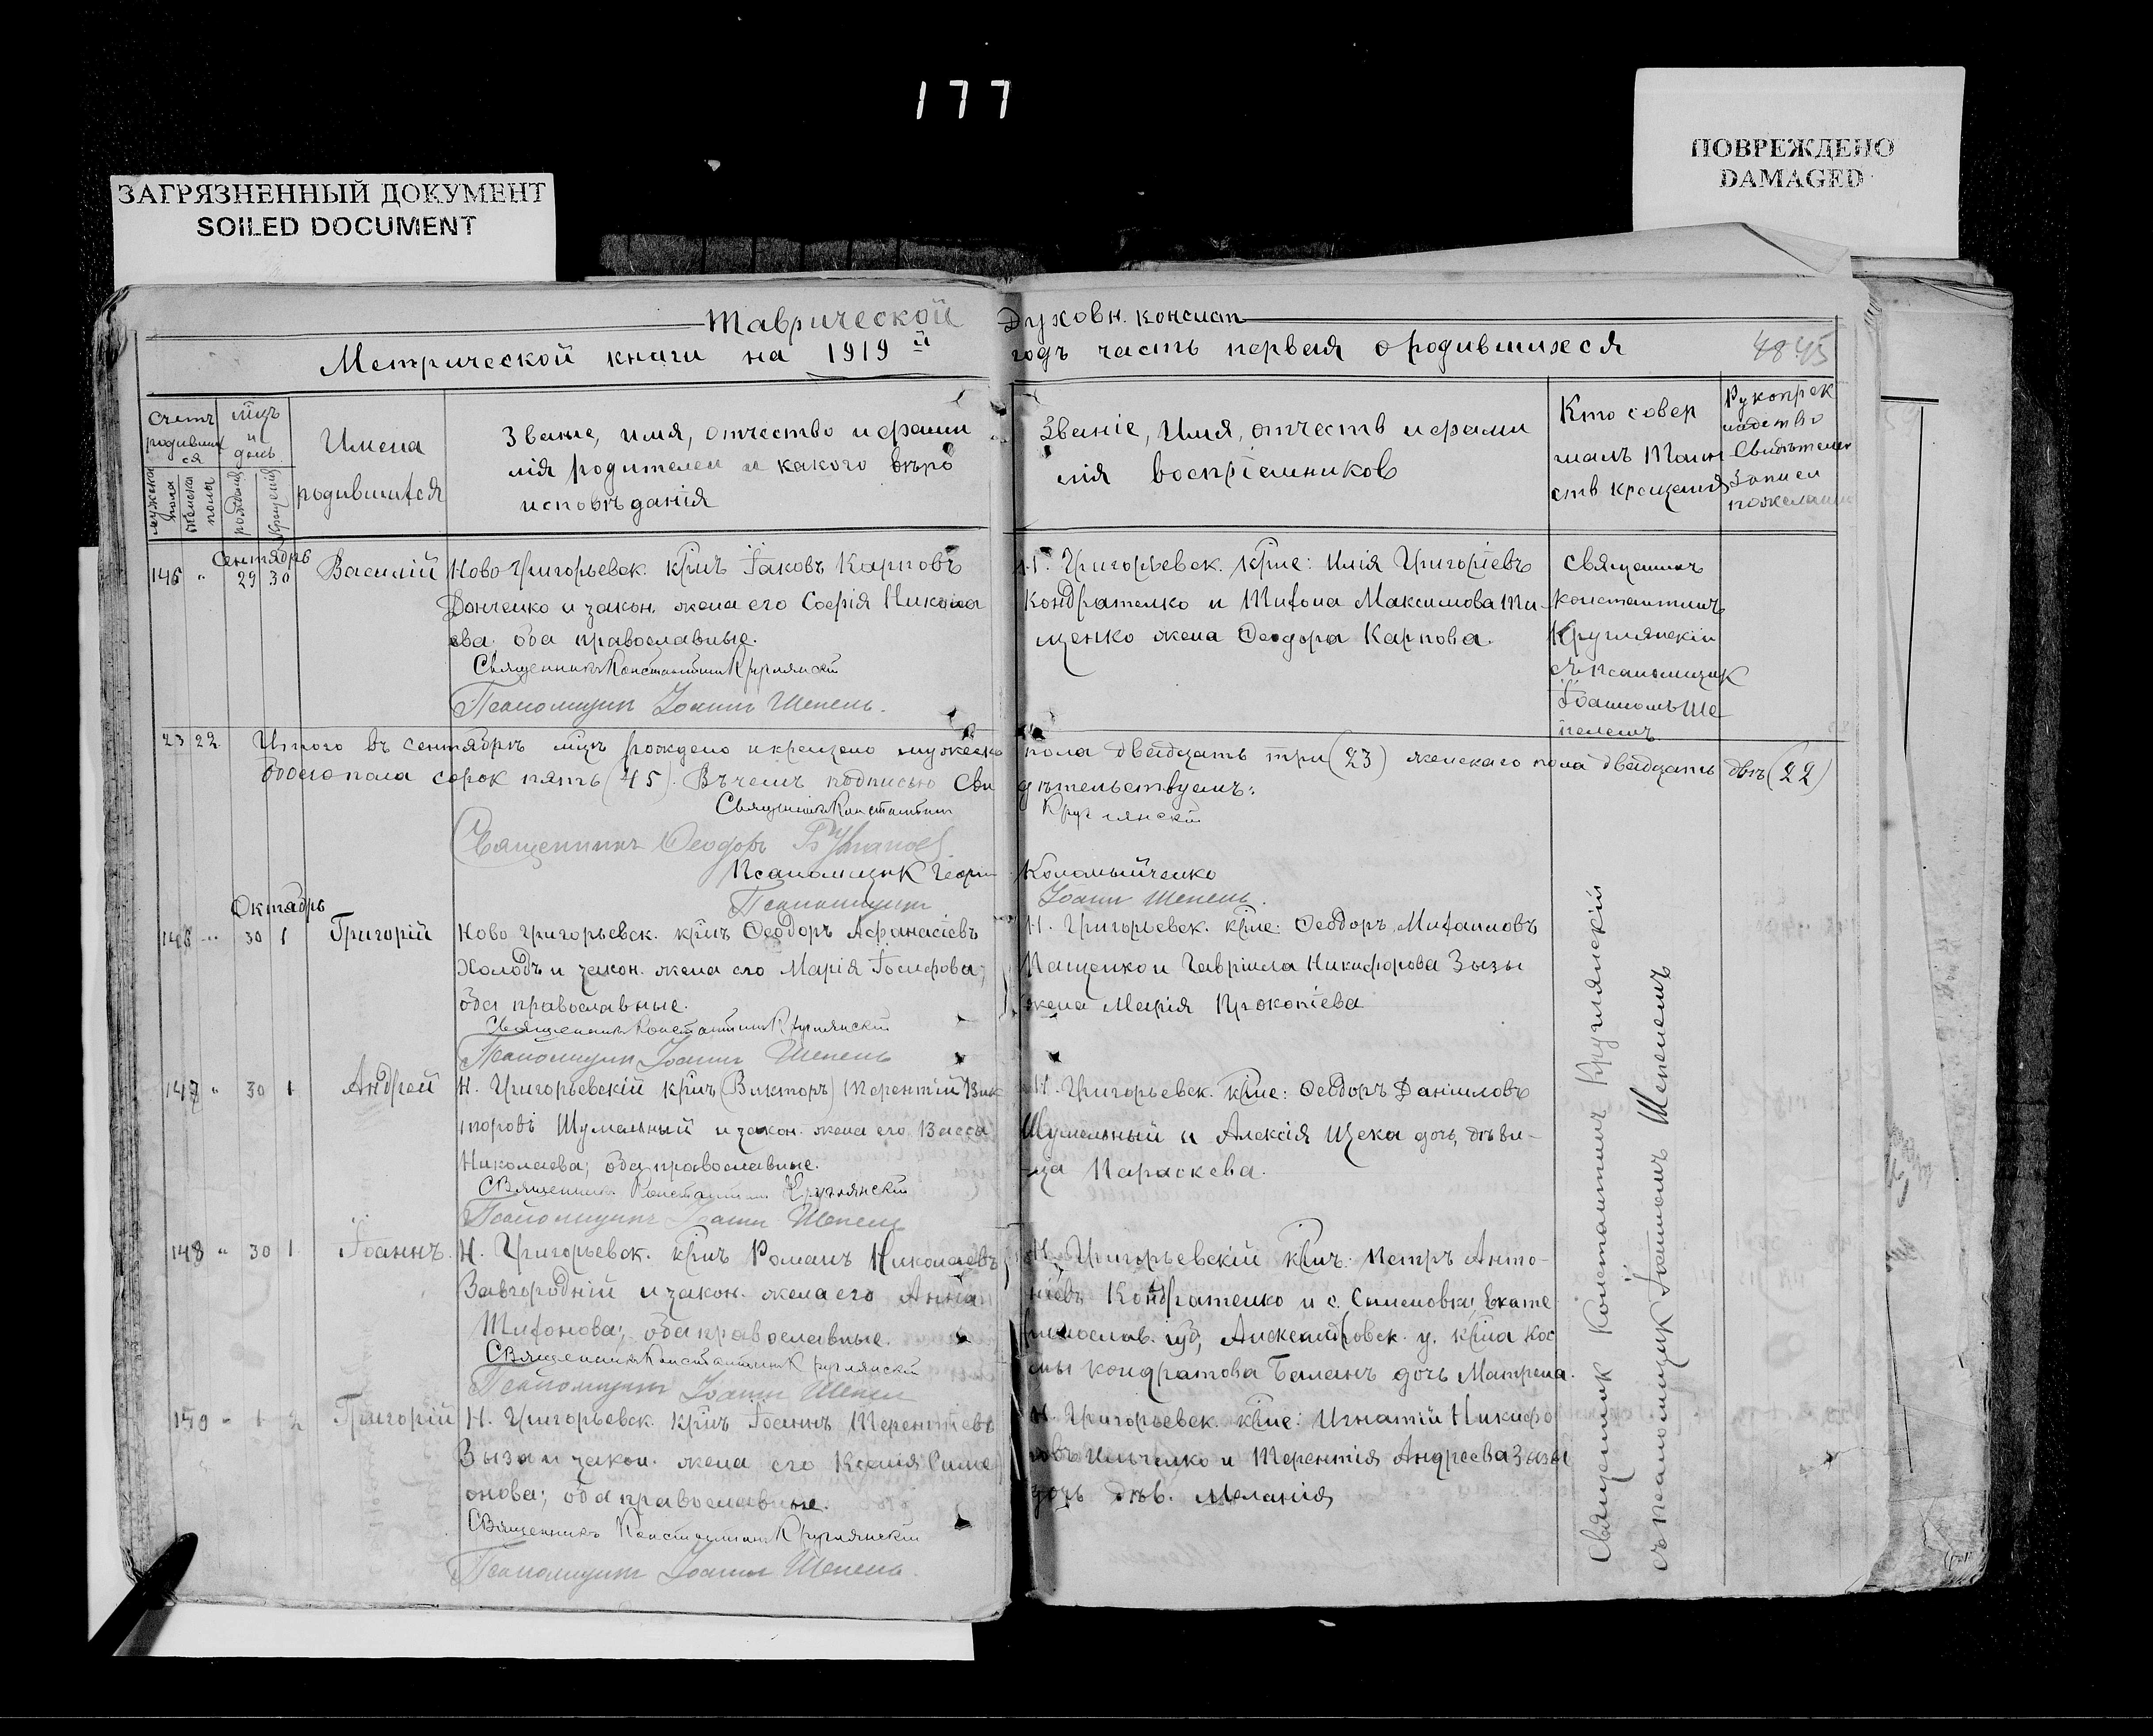 177
ЗАГРЯЗНЕННЫЙ ДОКУМЕНТ
SOILED DOCUMENT
ПОВРЕЖДЕНО
DAMAGED
Таврической Духовн. Консист
Метрической книги на 1919й годъ часть первая о родившихся
4845
Счетъ родивших ся
мужеска пола
женска полы
мѣцъ и день
рожденія
крещенія
Имена
родившихся
Званіе, имя, отчество и фами
лія родителей и какого вѣро
исповѣданія
Званіе, Имя, отчеств и фами
лія воспріемниковъ
Кто совер
шалъ Таин
ств крещенія
Рукоприк
ладство
Свидѣтелей
Записи
по желанію
Сентябрь
145 " 29 30 Василій
Ново Григорьевск. крнъ Іаковъ Карповъ
Донченко и закон. жена его Софія Никола
ева. оба православные.
Священникъ Константинъ Круглянскій
Псаломщикъ Іоаннъ Шепель.
Н. Григорьевск. крне: Илія Григоріевъ
Кондратенко и Тихона Максимова Ти-
щенко жена Феодора Карпова.
Священникъ
Константинъ
Круглянскій
съ псаломщик
Іоанномъ Ше
пелемъ
23 22 Итого въ сентябрѣ мцѣ рождено и крещено мужеск пола двадцать три (23) женскаго пола двадцать двѣ (22)
обоего пола сорок пять (45). Въ чемъ подписью Сви дѣтельствуемъ:
Священникъ Константинъ Круглянскій
Священникъ Феодоръ
Псаломщик Георг Коломыйченко
Псаломщикъ Іоаннъ Шепель.
Октябрь
146 " 30 1 Григорій
Ново Григорьевск. крнъ Феодоръ Афанасіевъ
Холодъ и закон. жена его Марія Іосифова;
оба православные.
Священникъ Константинъ Круглянскій
Псаломщикъ Іоаннъ Шепель
Н. Григорьевск. крне: Феодоръ Михаиловъ
Пащенко и Гавріила Никифорова Зызы
жена Марія Прокопіева
147 " 30 1 Андрей
Н. Григорьевскій крнъ (Викторъ) Терентій Вик
торовъ Шумельный и закон. жена его Васса
Николаева; оба православные.
Священникъ Константинъ Круглянскій
Псаломщикъ Іоаннъ Шепель
Н. Григорьевск. крне: Феодоръ Даніиловъ
Шумельный и Алексія Щека дочь дѣви-
ца Параскева.
148 " 30 1 Іоаннъ.
Н. Григорьевск. крнъ Романъ Николаевъ
Завгородній и закон. жена его Анна
Тихонова; оба православные.
Священникъ Константинъ Круглянскій
Псаломщикъ Іоаннъ Шепель
Н. Григорьевскій крнъ. Петръ Анто-
ніевъ Кондратенко и с. Семеновки, Екате
ринослав. губ, Александровск. у. крна Кос
мы Кондратова Баланъ дочь Матрена.
149 " 1 2 Григорій
Н. Григорьевск. крнъ Іоаннъ Терентіевъ
Зыза и закон. жена его Ксенія Симе
онова; оба православные.
Священникъ Константинъ Круглянскій
Псаломщикъ Іоаннъ Шепель.
Н. Григорьевск. крне: Игнатій Никифо
ровъ Ильченко и Терентія Андреева Зызы
дочь дѣв. Меланія
Священник Константинъ Круглянскій
съ псаломщик Іоанномъ Шепелемъ